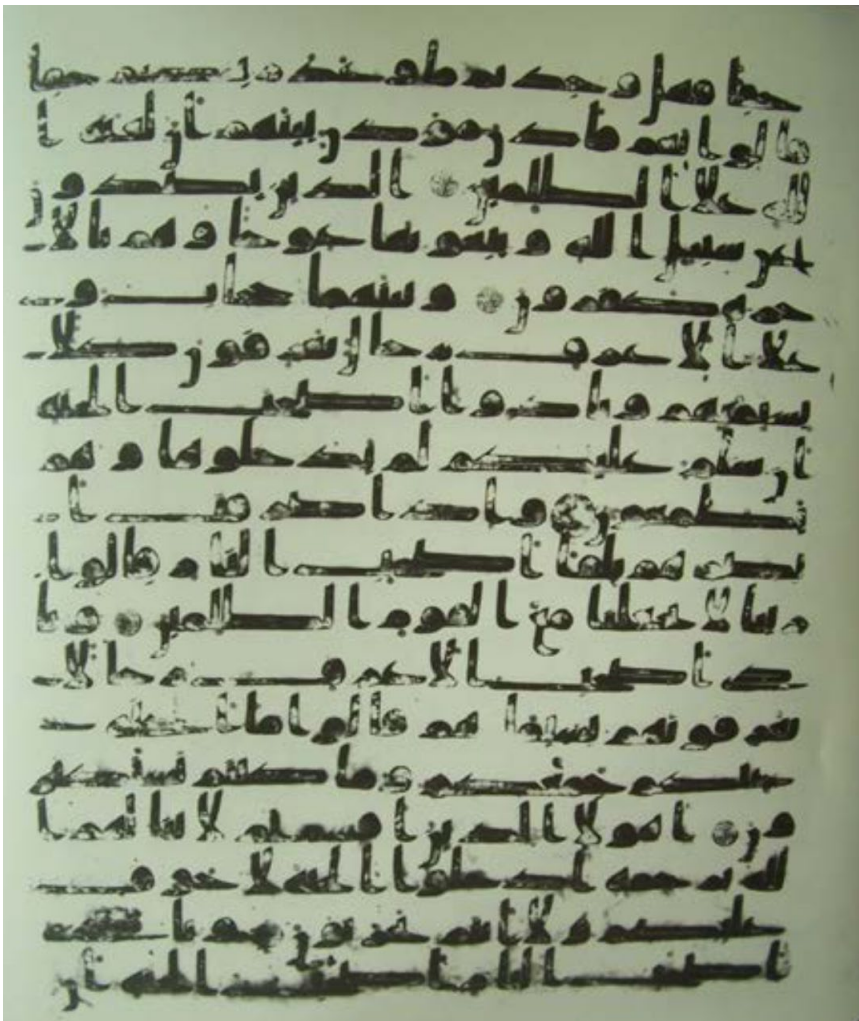 حقا فهل وجدتم ما وعد ربكم حقا
قالوا نعم فاذن موذن بينهم ان لعنه ا
لله علا الظلمين الذين يصدون
عن سبيل الله ويبغونها عوجا وهم بالا
خره كفرون وبينهما حجاب و
علا الاعراف رجال يعرفون كلا
بسيمهم ونادوا اصحب الجنه
ان سلم عليكم لم يدخلوها وهم
يطمعون واذا صرفت ا
بصرهم تلقا اصحب النار قالوا
ربنا لا تجعلنا مع القوم الظلمين ونا
دى اصحب الاعراف رجالا
يعرفونهم بسيمهم قالوا ما اغنى
عنكم جمعكم وما كنتم تستكبر
ون اهولا الذين اقسمتم لا ينالهم ا
لله برحمه ادخلوا الجنه لا خوف
عليكم ولا انتم تحزنون ونادى
اصحب النار اصحب الجنه ان